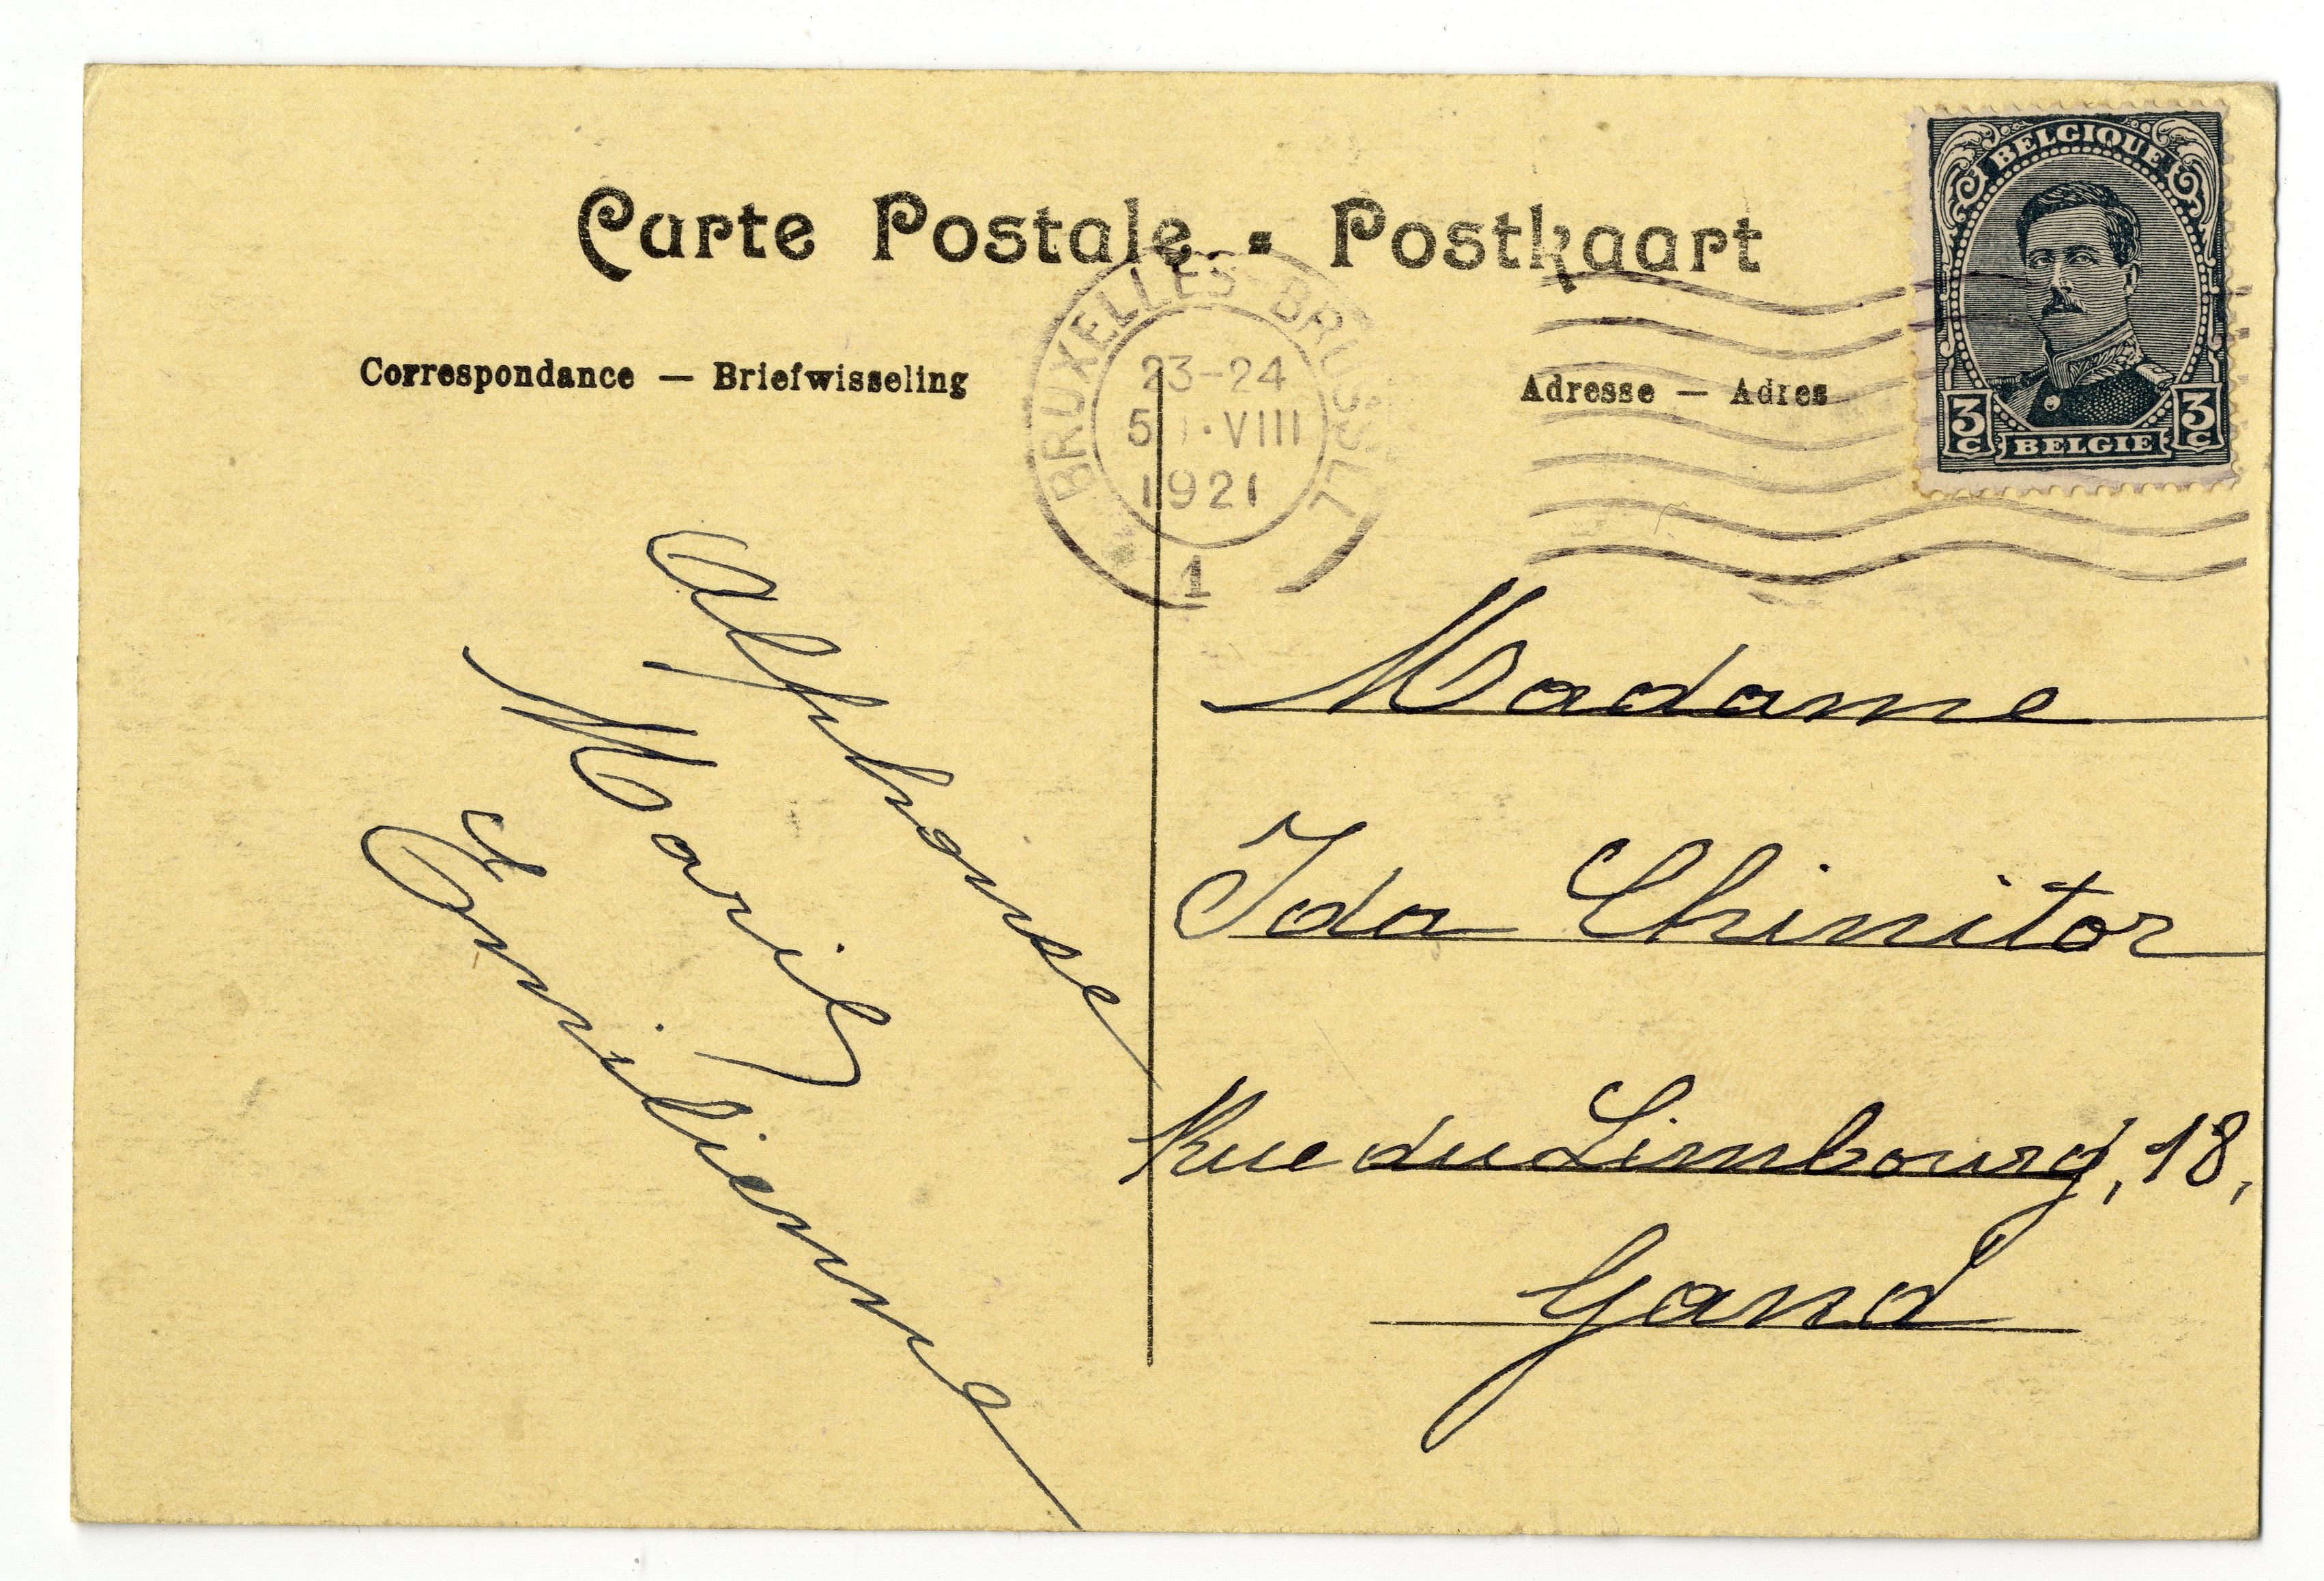 Carte Postale - Postkaart
Correspondance — Briefwisseling
Adresse — Adres
BELGIQUE
3 C
3 C
BELGIE
BRUXELLES-BRUSSEL
23-24
5 VIII
1921
1
Alphonse
Marie
et
Emilienne
Madame
Ida Chinitor
Rue du Limbourg, 18,
Gand